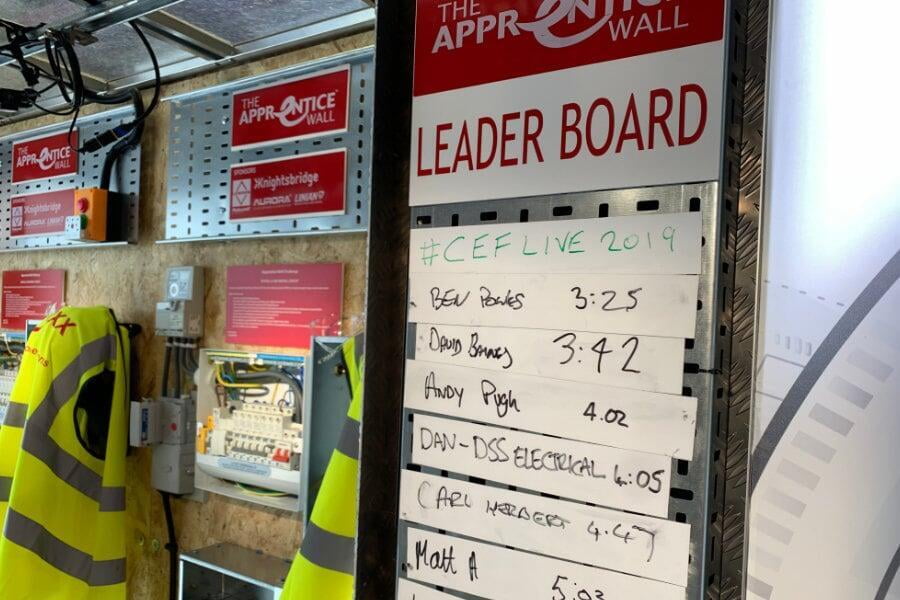 THE
APPRENTICE
WALL
LEADER BOARD
#CEF LIVE 2019
BEN POWES 3:25
DAVID BAINES 3:42
ANDY Pugh 4.02
DAN-DSS ELECTRICAL 4:05
CARL HERBERT 4.47
Matt A 5:03
THE
APPRENTICE
WALL
SPONSORS
Knightsbridge
AURORA LINIAN
THE
APPRENTICE
WALL
Knightsbridge
AURORA LINIAN